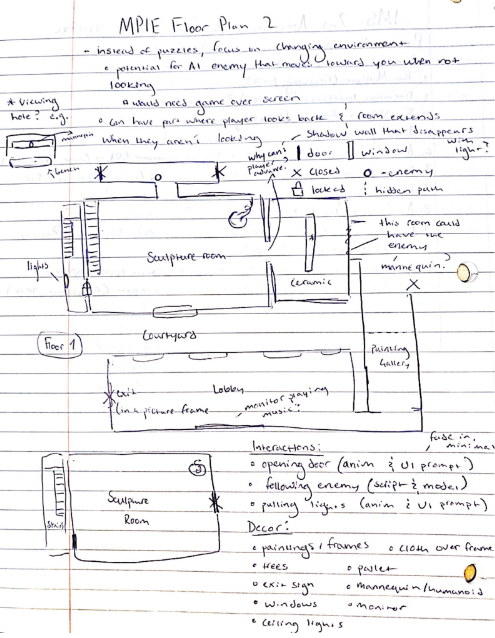 MPIE Floor Plan 2
- instead of puzzles, focus on changing environment
o potential for AI enemy that moves toward you when not
looking
* would need game over screen
* Viewing
hole? e.g.
mannequin
bench
o can have part where player looks back & room extends
when they aren't looking
Shadow wall that disappears
with
light?
why can't
player
advance.
door
window
X closed
o - enemy
locked
hidden path
lights
Sculpture room
Ceramic
this room could
have the
enemy
mannequin?
Courtyard
Floor 1
Painting
Gallery
exit
Lobby
(in a picture frame
monitor playing
music?
Stairs
Sculpture
Room
Interactions:
fade in,
minimal
o opening door (anim & UI prompt)
o following enemy (script & model)
o pulling lights (anim & UI prompt)
Decor:
o paintings / frames o cloth over frame
o trees o pallet
o exit sign o mannequin/humanoid
o windows o monitor
o ceiling lights